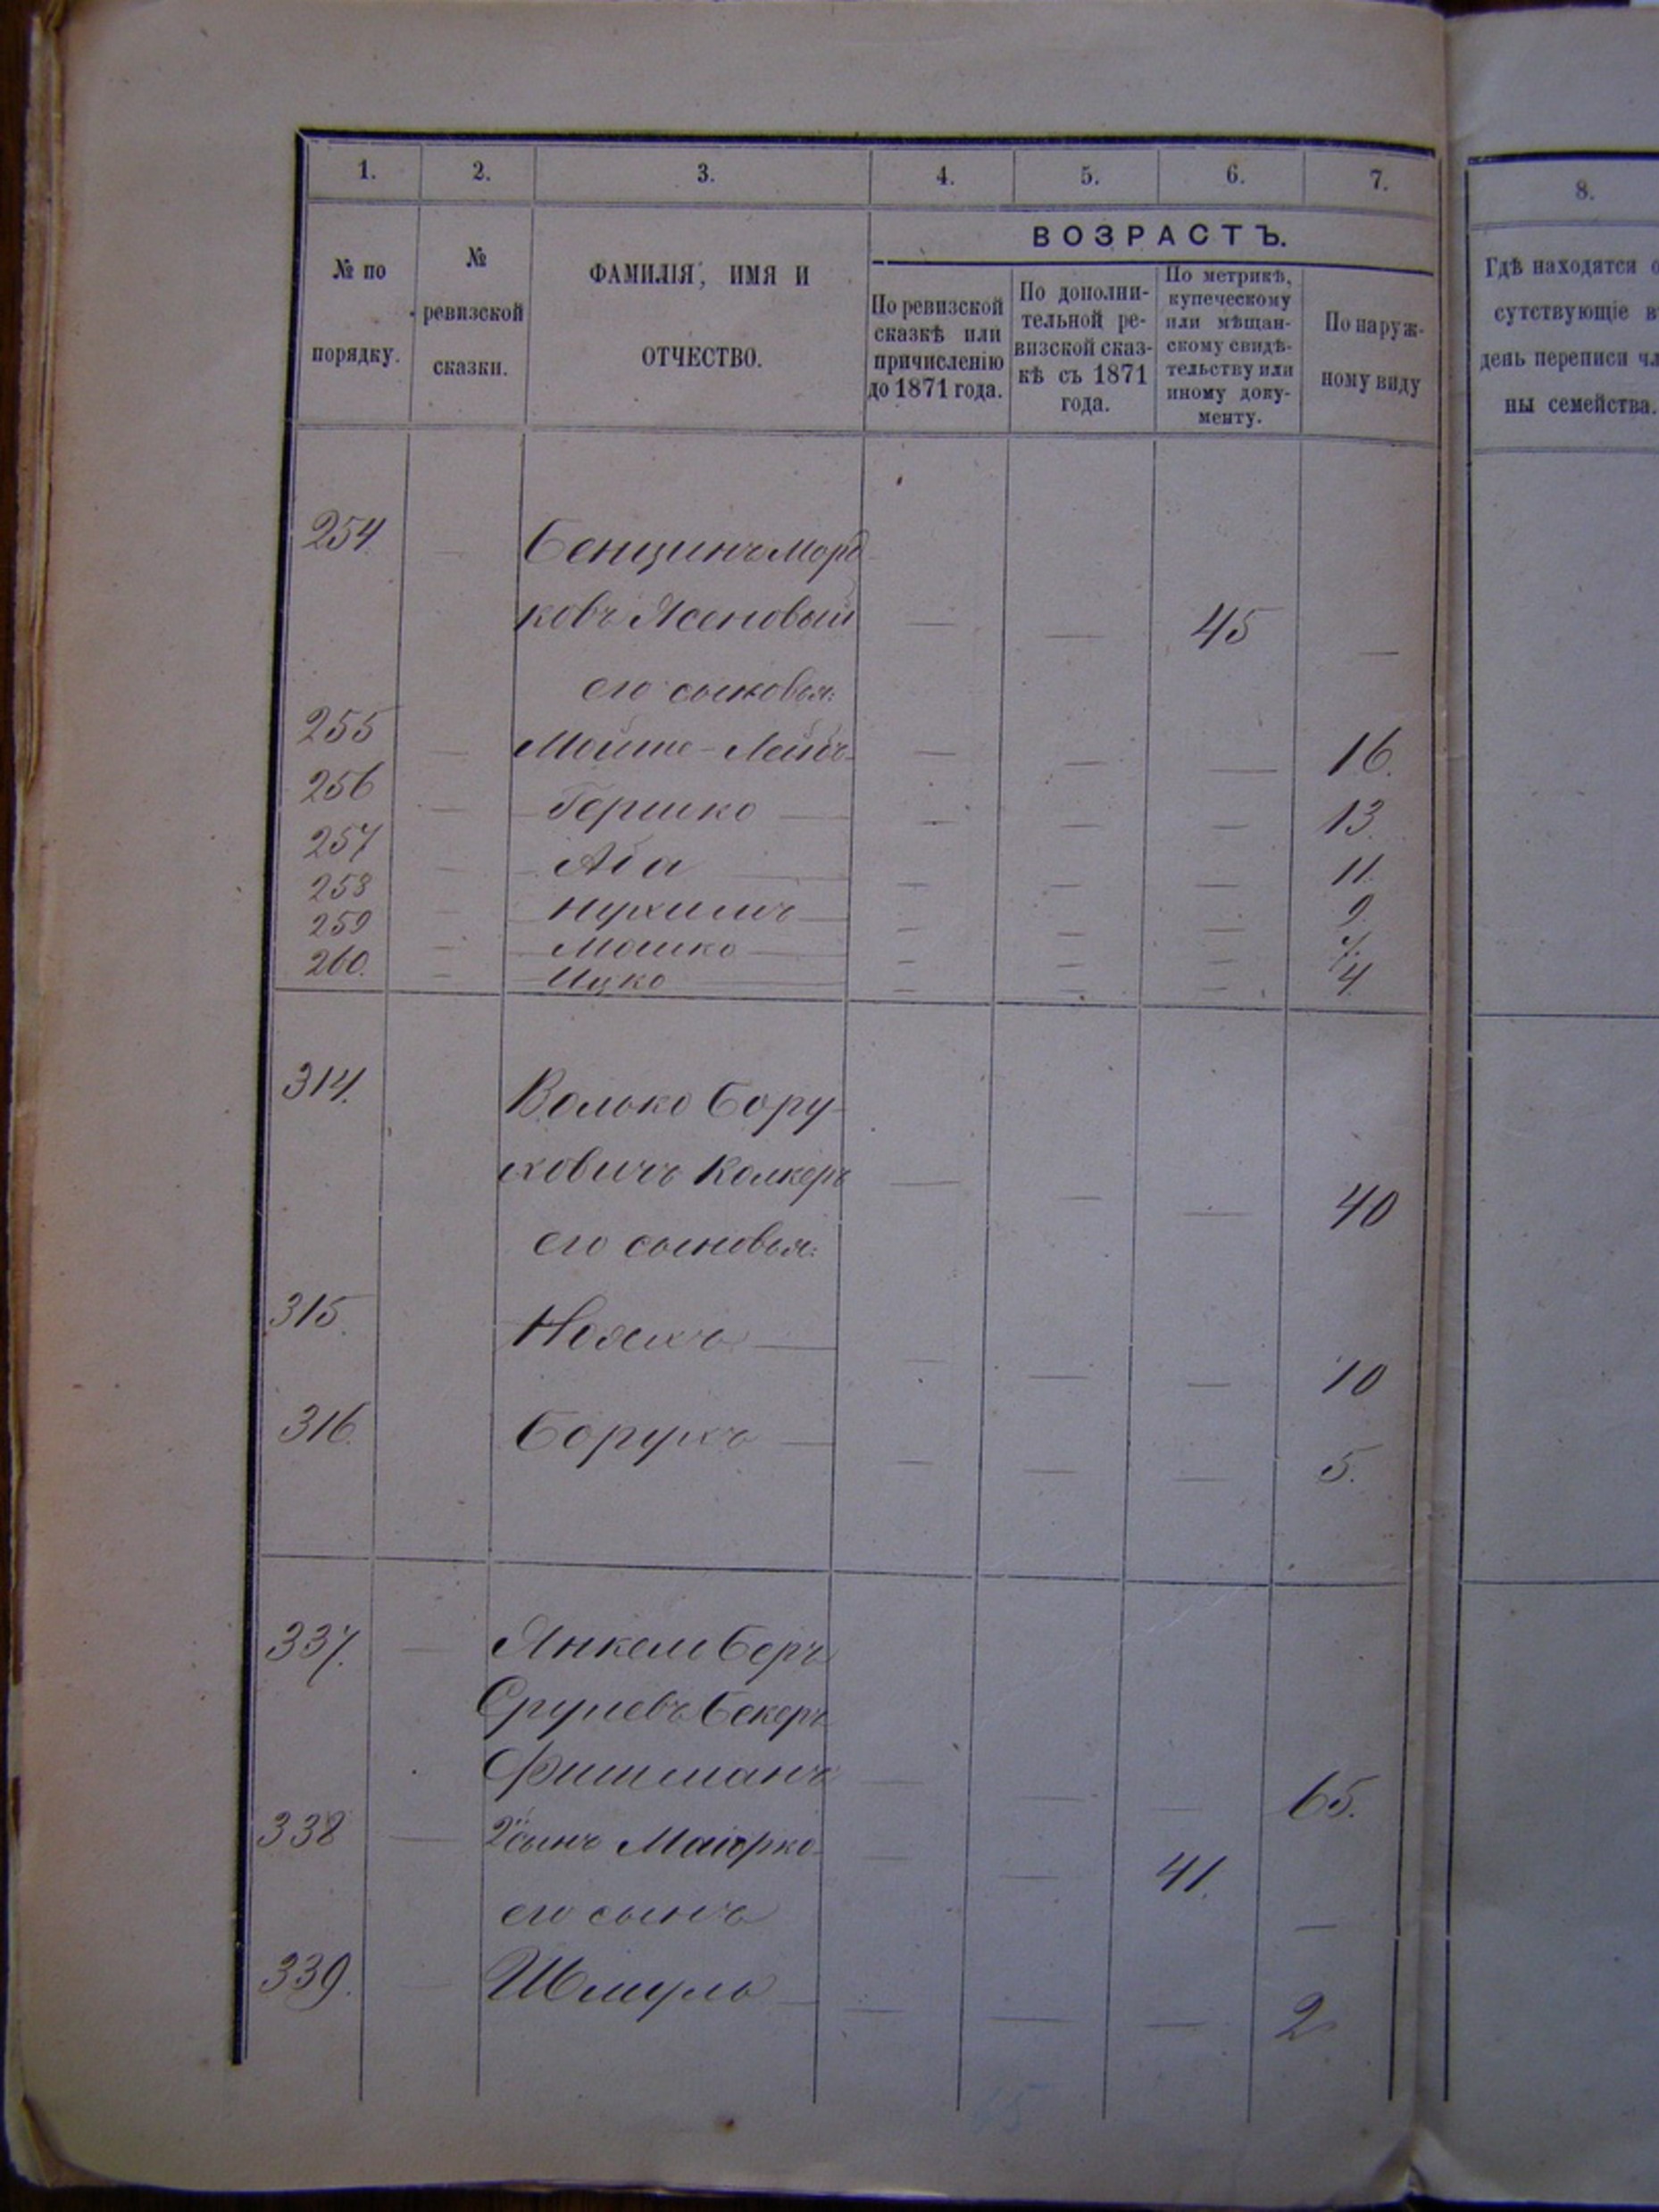 1. 2. 3. 4. 5. 6. 7. 8.
№ по порядку.
№ ревизской сказки.
ФАМИЛІЯ, ИМЯ И ОТЧЕСТВО.
ВОЗРАСТЪ.
По ревизской сказкѣ или причисленію до 1871 года.
По дополни-
тельной ре-
визской сказ-
кѣ съ 1871
года.
По метрикѣ,
купеческому
или мѣщан-
скому свидѣ-
тельству или
иному доку-
менту.
По наруж-
ному виду
Гдѣ находятся
сутствующіе
день переписи
ны семейства.
254 — Бенционъ Морд
ковъ Ясеновый — — 45 —
его сыновья:
255 — Мойше-Лейбъ — — — 16.
256 — Гершко — — — — 13.
257 — Аба — — — — 11.
258 — Нухимъ — — — — 9.
259 — Мошко — — — — 7.
260. — Ицко — — — — 4.
314. Волько Бору-
ховичъ Колкеръ — — — 40
его сыновья:
315. Ноехъ — — — — 10
316. Борухъ — — — — 5.
337. — Янкель Беръ
Срулевъ Бекеръ
Фишманъ — — — 65.
338 — 2й сынъ Маіорко — — 41. —
его сынъ
339. — Шмуль — — — — 2
65